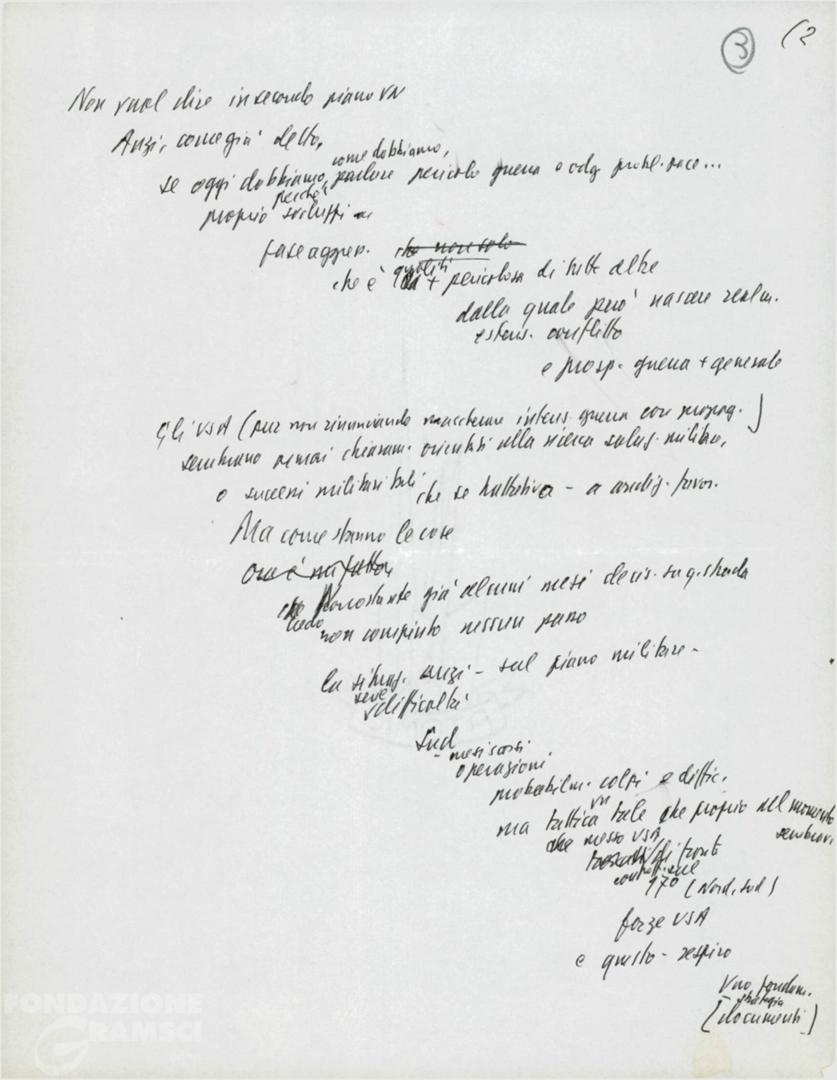 3 (2
Non vuol dire in secondo piano VN
Anzi, come già detto,
come dobbiamo,
se oggi dobbiamo, parlare pericolo guerra e odg probl. pace...
perché
proprio sviluppi
fase aggress.
che è + pericolosa di tutte altre
dalla quale può nascere realm.
estens. conflitto
e prosp. guerra + generale
Gli USA (pur non rinunciando mascherare intens. guerra con propag.)
sembrano ormai chiaram. orientati alla ricerca soluz. militare,
o successi militari tali che se trattativa - a condiz. favor.
Ma come stanno le cose
ora è un fatto
che nonostante già alcuni mesi decis. su q. strada
credo
non compiuto nessun passo
la situaz. anzi - sul piano militare -
serie
difficoltà
Sud
- mesi scorsi
operazioni
probabilm. colpi e diffic.
VN
ma tattica tale che proprio nel momento
sembrava
che messo USA
trovati di fronte
17° (Nord, sud)
forze USA
e questo - respiro
fondam.
- strategia
(documenti)
FONDAZIONE
GRAMSCI